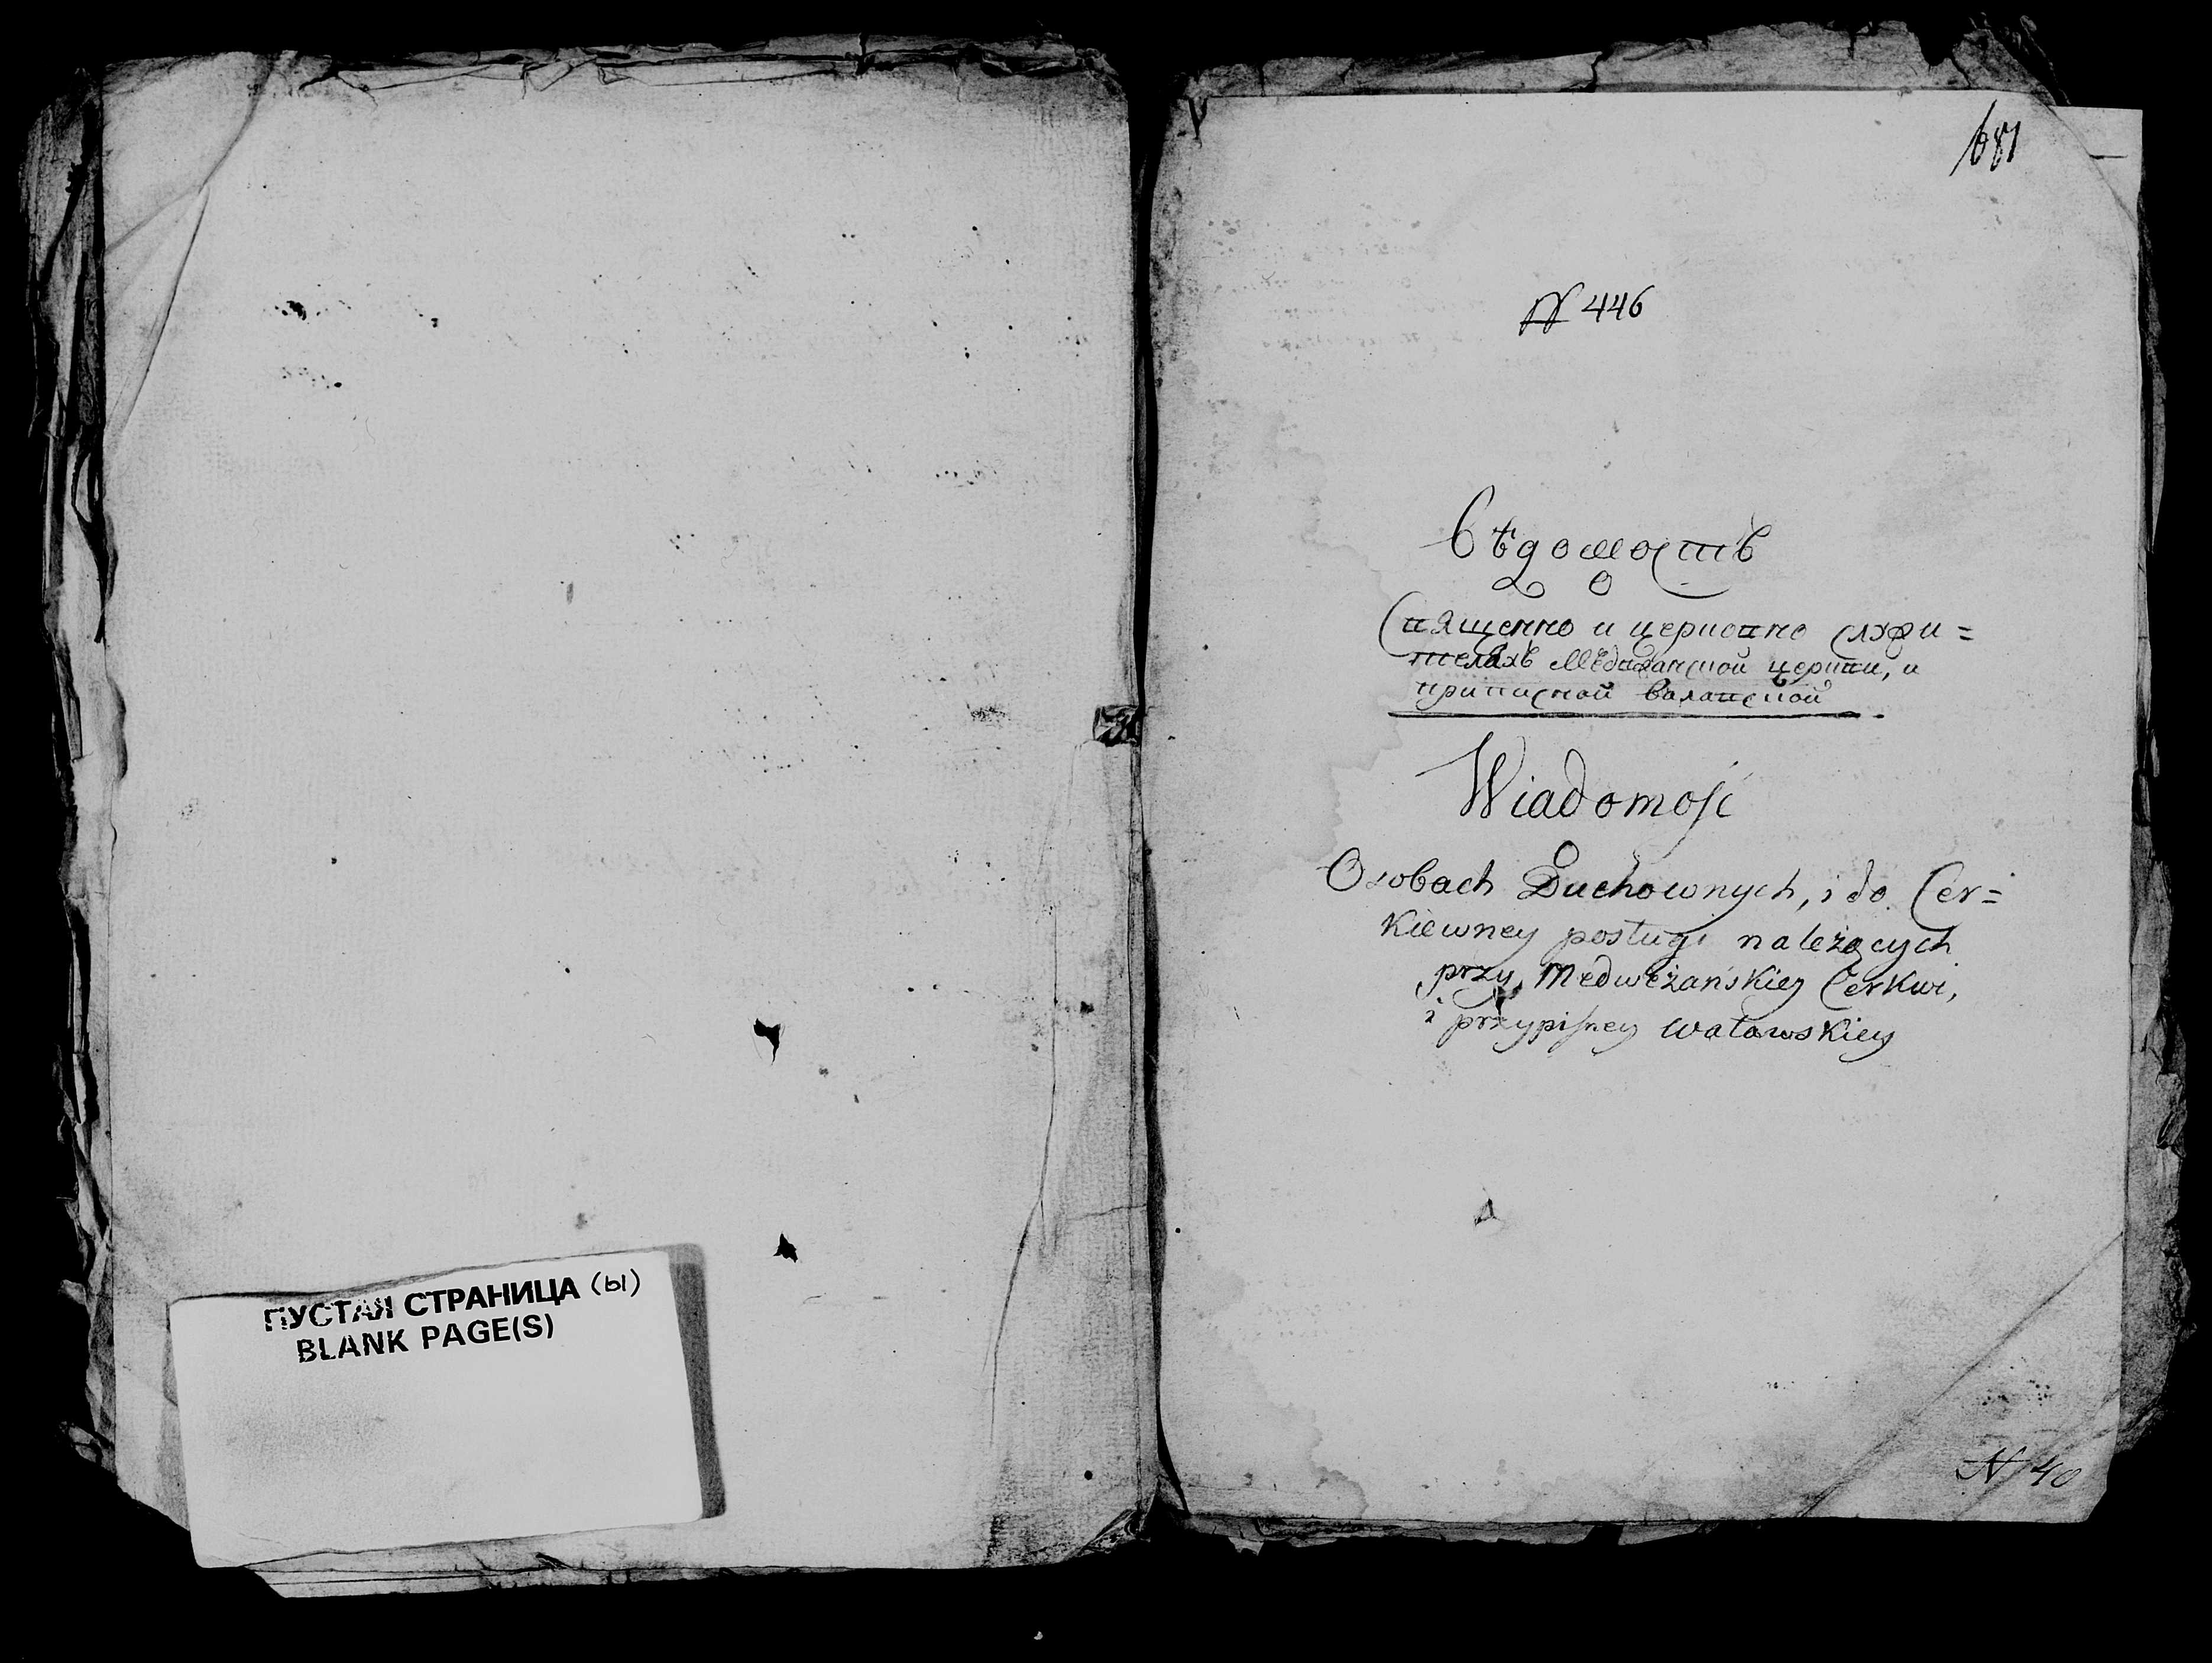 ПУСТАЯ СТРАНИЦА (Ы)
BLANK PAGE(S)
681
№ 446
Вѣдомость
о
Священно и церковно служи=
телахъ Медвежанской церкви, и
приписной валавской
Wiadomość
O
Osobach Duchownych, i do Cer=
kiewney posługi należących
przy Medweżańskiey Cerkwi,
i przypisney Waławskiey
N 40